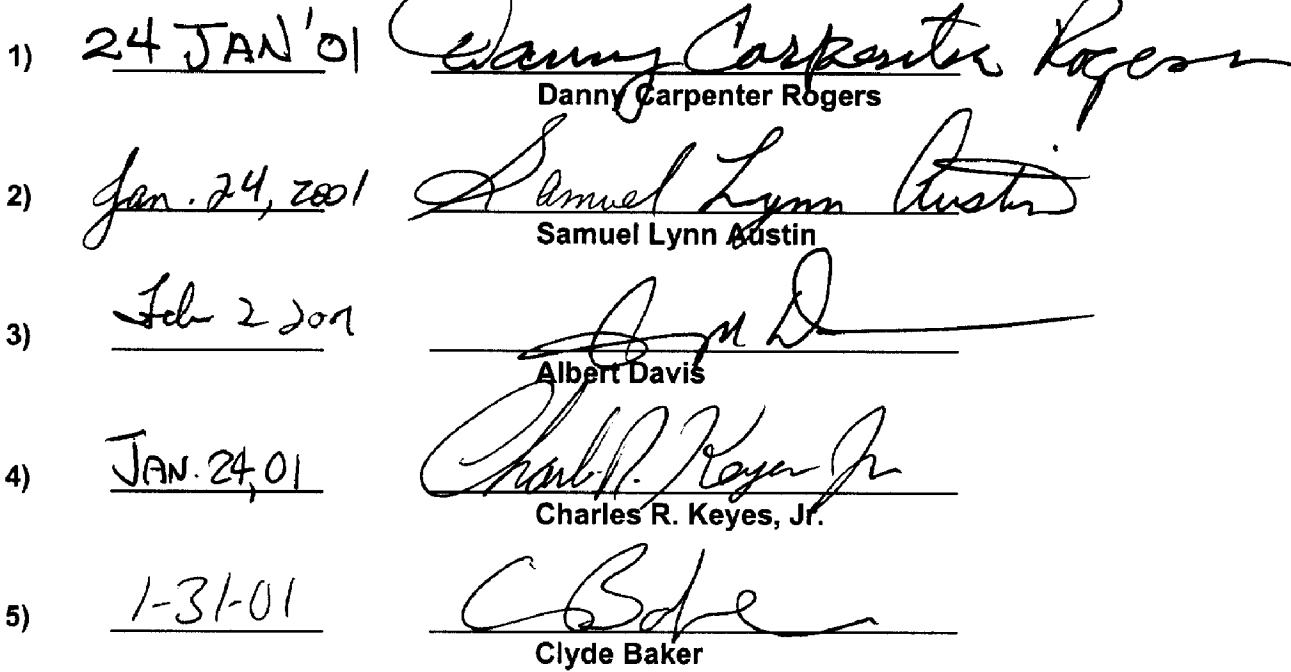 1) 24 JAN '01 Danny Carpenter Rogers
Danny Carpenter Rogers
2) Jan. 24, 2001 Samuel Lynn Austin
Samuel Lynn Austin
3) Feb 2 2001
Albert Davis
4) JAN. 24, 01 Charles R. Keyes Jr
Charles R. Keyes, Jr.
5) 1-31-01 C Baker
Clyde Baker